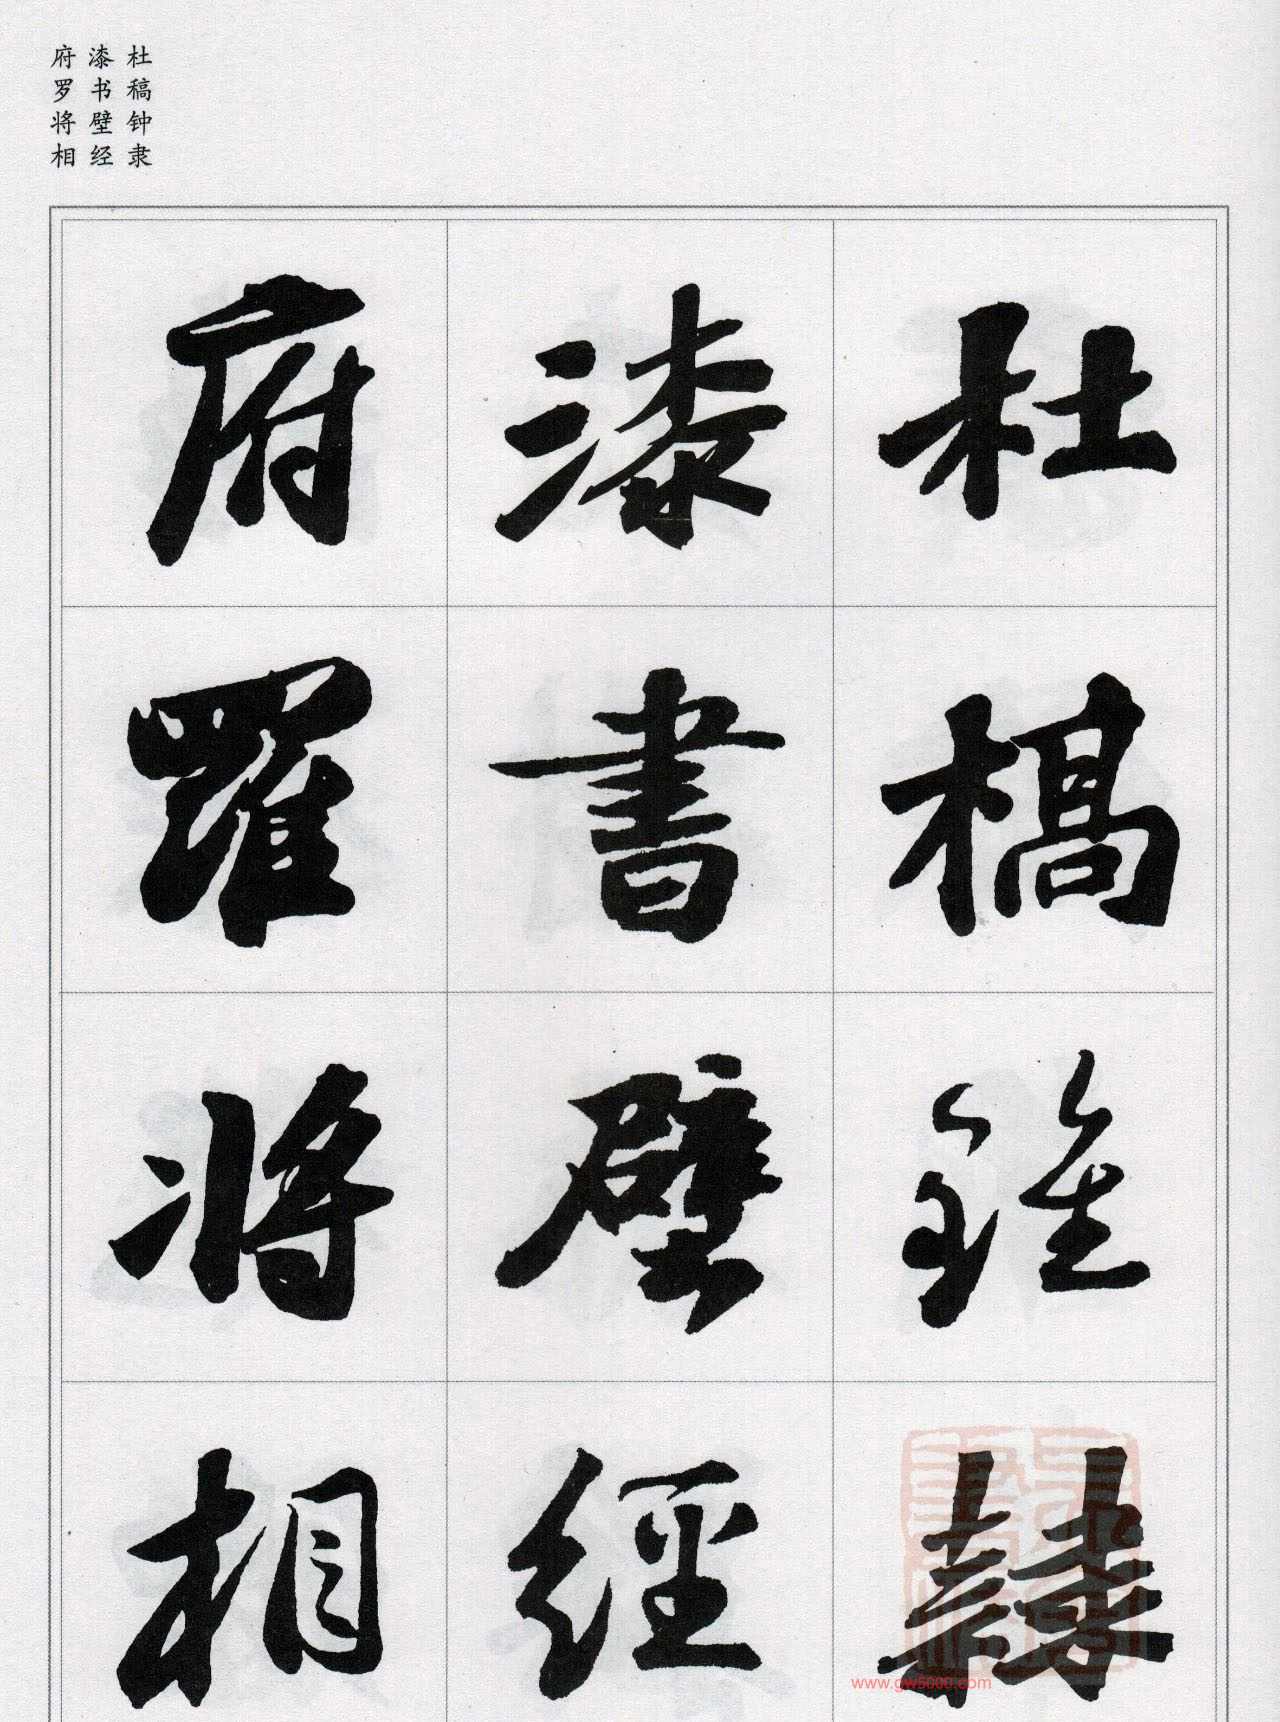 杜稿钟隶
漆书壁经
府罗将相
杜槁鍾隸
漆書壁經
府羅將相
www.gw5000.com